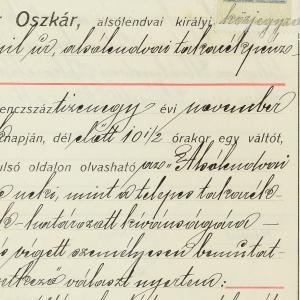 Oszkár, alsólendvai királyi közjegyző
úr, alsólendvai takarékpénz
enczszáz tizenegy évi november
napján, dél előtt 10 1/2 órakor egy váltót,
ulsó oldalon olvasható "Alsólendvai
neki, mint a telepes takarék
k határozott kívánságára —
végett személyesen bemutat-
választ nyertem: